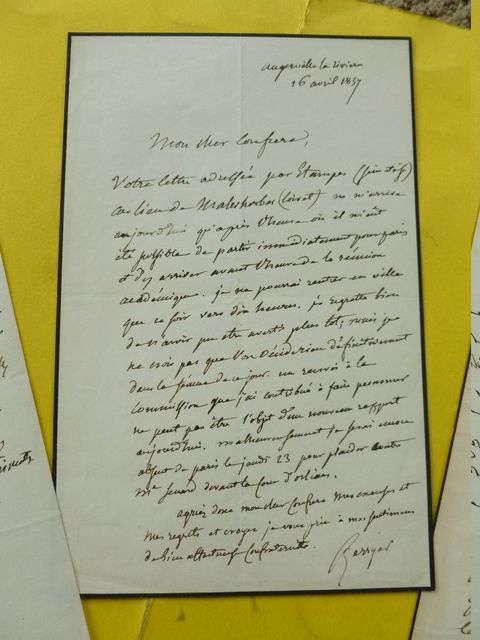 augerville la rivière
16 avril 1857
Mon cher confrère,
Votre lettre adressée par Étampes
au lieu de Malesherbes (Loiret) ne m'arrive
aujourd'hui qu'après l'heure où il m'eût
été possible de partir immédiatement pour paris
et d'y arriver avant l'heure de la réunion
académique. je ne pourrai rentrer en ville
que ce soir vers dix heures. je regrette bien
de n'avoir pu être averti plus tot; mais je
ne crois pas que l'on décide rien définitivement
dans la séance de ce jour. un renvoi à la
commission que j'ai contribué à faire prononcer
ne peut pas être l'objet d'un nouveau rapport
aujourd'hui. malheureusement je serai encore
absent de paris le jeudi 23 pour plaider contre
me Senard devant la Cour d'orléans.
agréez donc mon cher confrère mes excuses et
mes regrets et croyez je vous prie à mes sentimens
de bien affectueuse confraternité.
Berryer